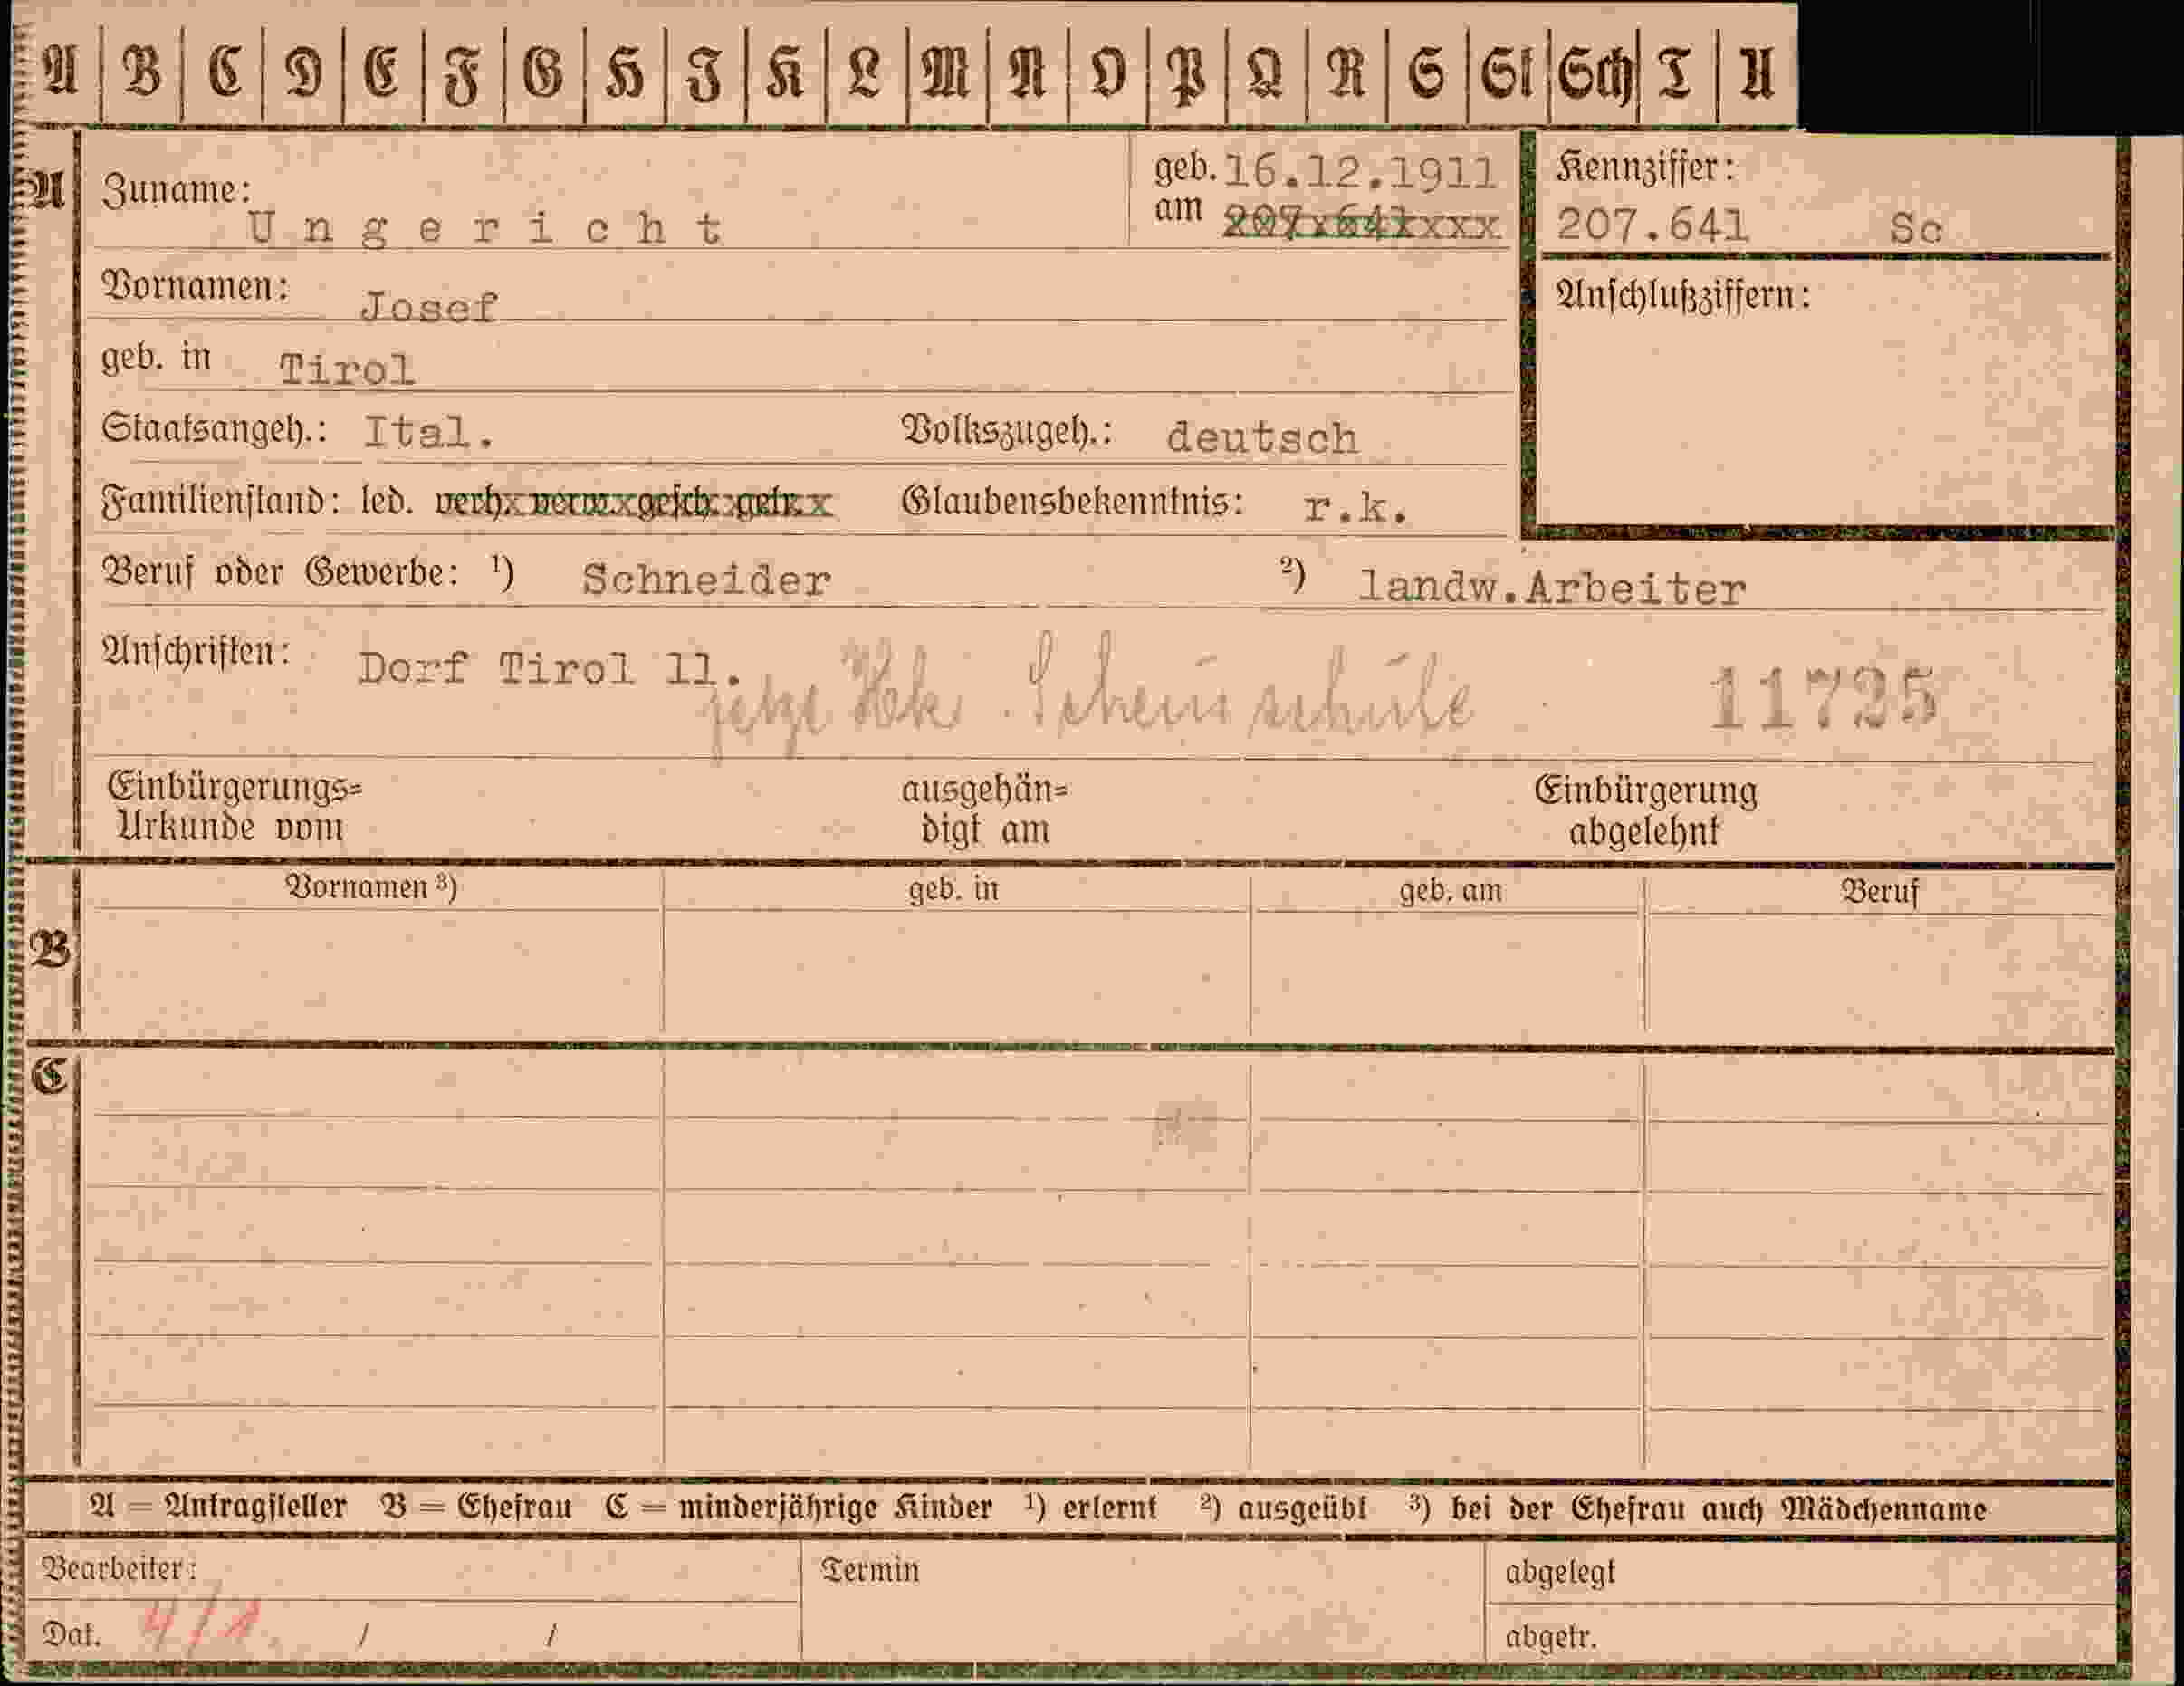 A B C D E F G H I K L M N O P Q R S St Sch T U
A
Zuname: Ungericht
geb. am 16.12.1911
Kennziffer:
207.641 Sc
Vornamen: Josef
Anschlußziffern:
geb. in Tirol
Staatsangeh.: Ital. Volkszugeh.: deutsch
Familienstand: led. verh. verw. gesch. getr. Glaubensbekenntnis: r.k.
Beruf oder Gewerbe: ¹) Schneider ²) landw.Arbeiter
Anschriften: Dorf Tirol 11.
jetzt 11725
Einbürgerungs=
Urkunde vom
ausgehän=
digt am
Einbürgerung
abgelehnt
B
Vornamen ³) geb. in geb. am Beruf
C
A = Antragsteller B = Ehefrau C = minderjährige Kinder ¹) erlernt ²) ausgeübt ³) bei der Ehefrau auch Mädchenname
Bearbeiter: Termin abgelegt
Dat. 4/1. / / abgetr.